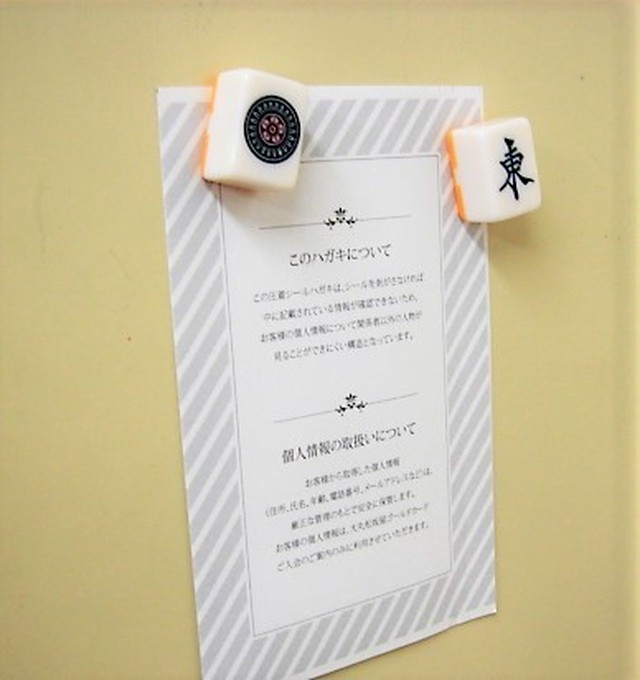 東
このハガキについて
この圧着シールハガキは、シールを剥がさなければ
中に記載されている情報が確認できないため、
お客様の個人情報について関係者以外の人物が
見ることができにくい構造となっています。
個人情報の取扱いについて
お客様から取得した個人情報
(住所、氏名、年齢、電話番号、メールアドレスなど)は、
厳正な管理のもとで安全に保管します。
お客様の個人情報は、大丸松坂屋ゴールドカード
ご入会のご案内のみに利用させていただきます。